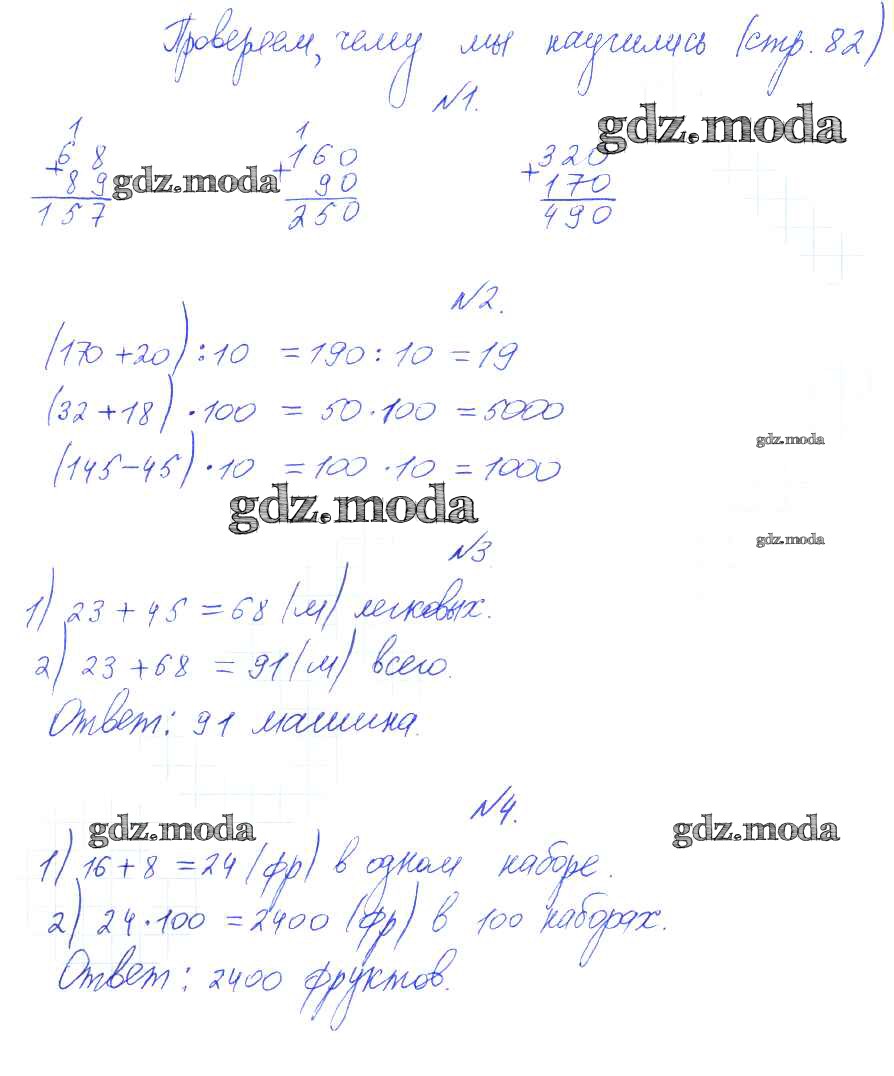 Проверяем, чему мы научились (стр. 82)
№1.
gdz.moda
1 1
+68 +160 +320
89 gdz.moda 90 170
157 250 490
№2.
(170+20):10 =190:10 =19
(32+18)·100 = 50·100 =5000
gdz.moda
(145-45)·10 =100 ·10 =1000
gdz.moda
gdz.moda
№3
1) 23+45 =68 (м) легковых.
2) 23+68 =91(м) всего.
Ответ: 91 машина.
№4.
gdz.moda gdz.moda
1) 16+8 =24 (фр) в одном наборе.
2) 24·100 =2400 (фр) в 100 наборах.
Ответ: 2400 фруктов.